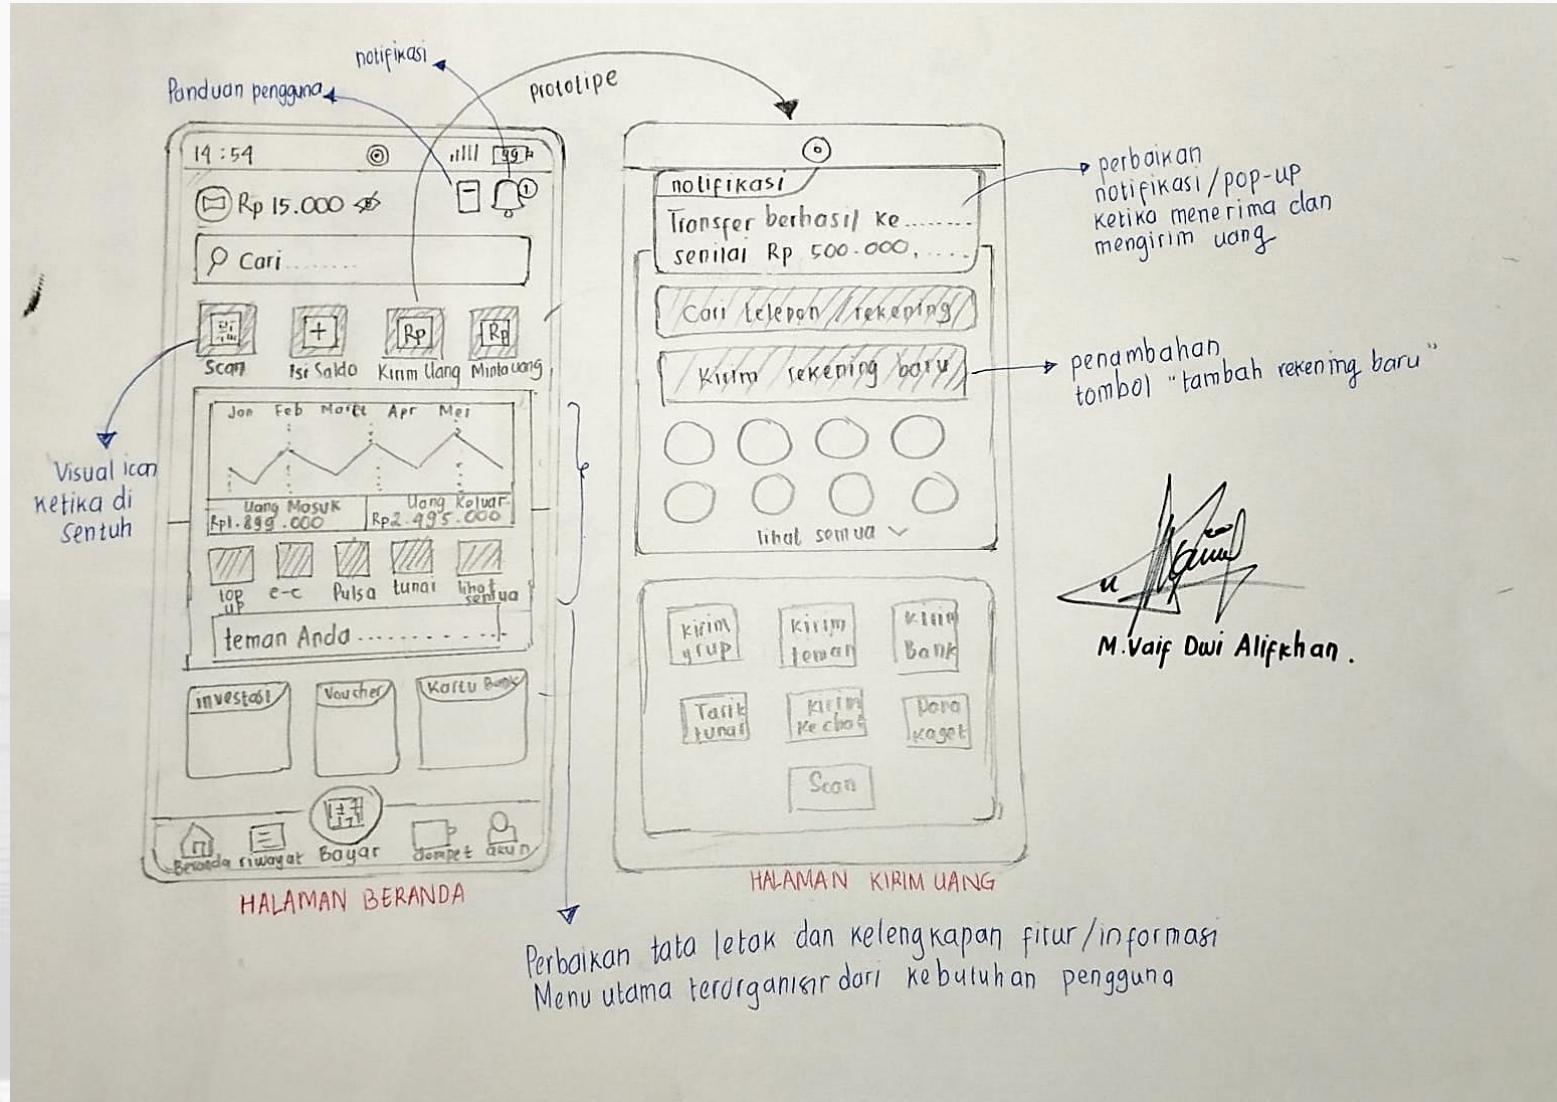 notifikasi
Panduan pengguna
prototipe
14:54
99
Rp 15.000
1
Cari........
Scan
Isi Saldo
Rp
Kirim Uang
Rp
Minta uang
Jan Feb Maret Apr Mei
Uang Masuk
Rp1.899.000
Uang Keluar
Rp2.495.000
top up
e-c
Pulsa
tunai
lihat semua
teman Anda ..............
investasi
Voucher
Kartu Bank
Beranda
riwayat
Bayar
dompet
akun
HALAMAN BERANDA
Visual icon
ketika di
sentuh
notifikasi
Transfer berhasil ke........
senilai Rp 500.000,....
Cari telepon / rekening
Kirim rekening baru
lihat semua
Kirim grup
Kirim teman
Kirim Bank
Tarik tunai
Kirim ke chat
Dana kaget
Scan
HALAMAN KIRIM UANG
perbaikan
notifikasi/pop-up
ketika menerima dan
mengirim uang
penambahan
tombol "tambah rekening baru"
M.Vaif Dwi Alifkhan.
Perbaikan tata letak dan kelengkapan fitur/informasi
Menu utama terorganisir dari kebutuhan pengguna